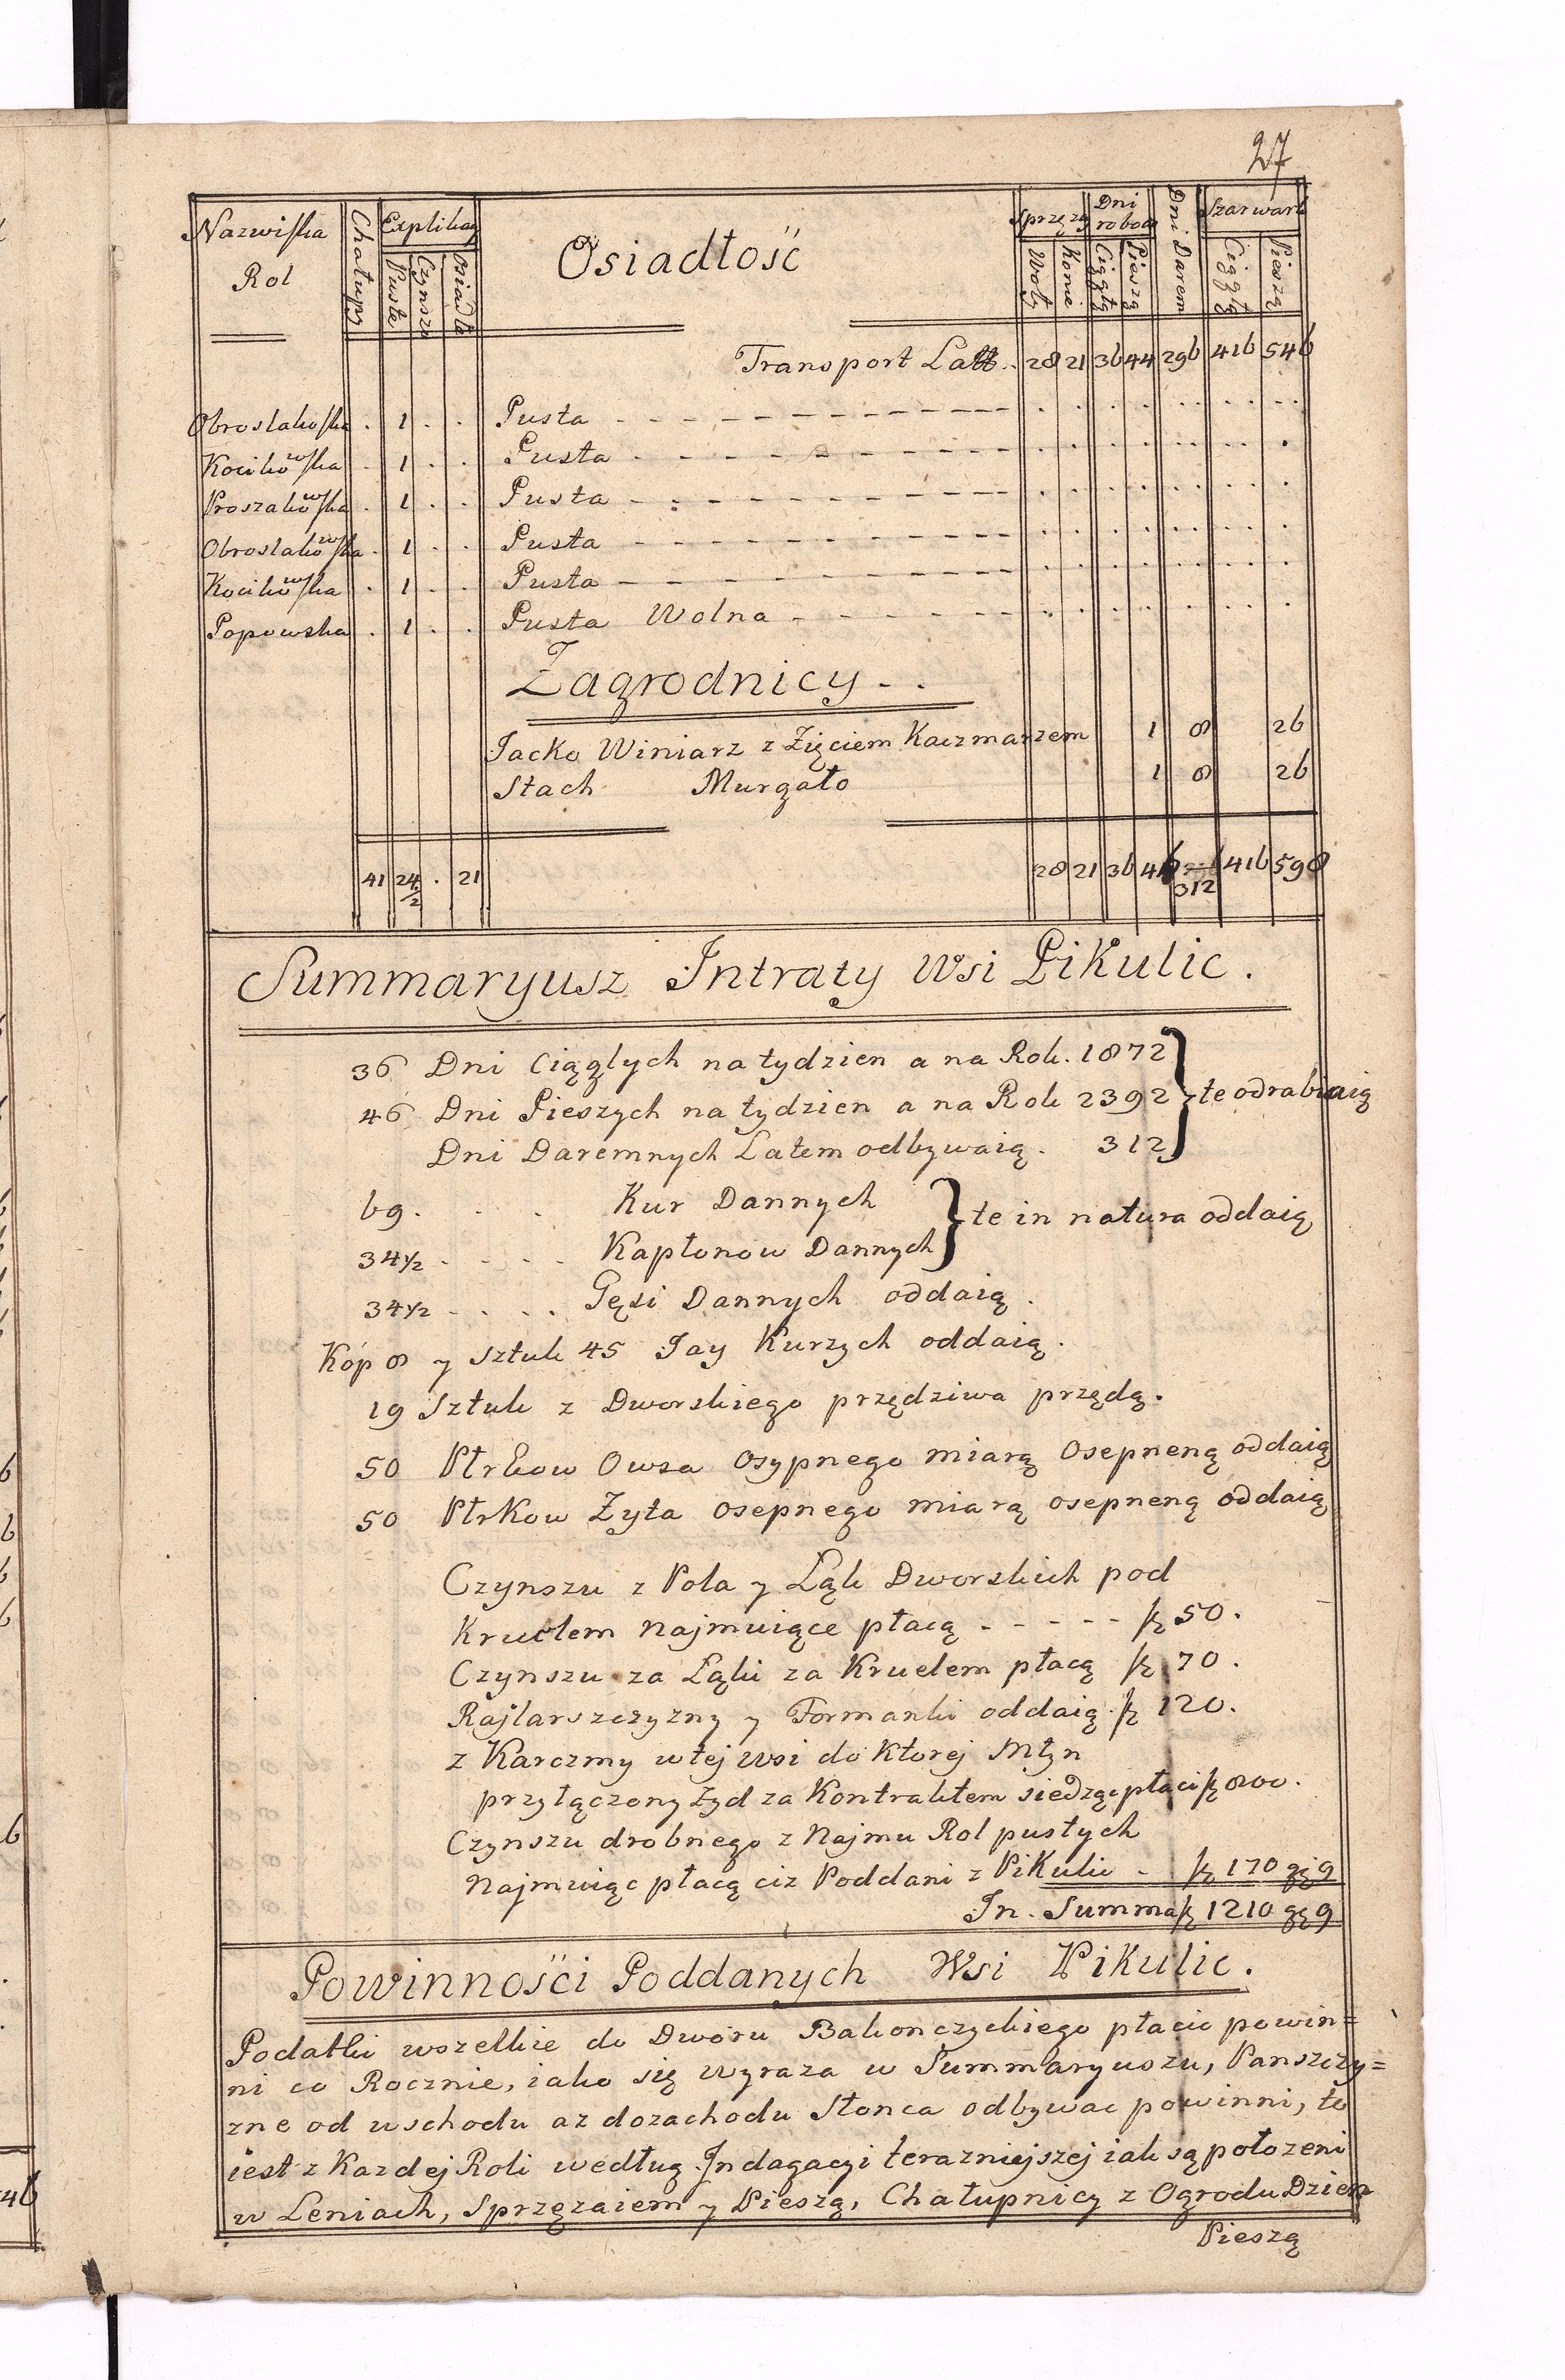 27
Nazwiska Rol | Chałupy | Explikac | Puste | Czynszo | Osiadłe | Osiadłość | Sprzęzay | Woły | Konie | Dni robocz | Ciągłą | Pieszą | Dni Darem | Szarwark | Ciągły | Pieszą
Transport Latt. 28 21 36 44 296 416 546
Obroslakoska . 1 . . Pusta
Kocikowska . 1 . . Pusta
Proszakowska . 1 . . Pusta
Obroslakowska . 1 . . Pusta
Kocikowska . 1 . . Pusta
Popowska . 1 . . Pusta Wolna
Zagrodnicy . .
Jacko Winiarz z Zięciem Kaczmarzem 1 8 26
Stach Murgało 1 8 26
41 24 1/2 . 21 28 21 36 46 312 416 598
Summaryusz Intraty Wsi Pikulic.
36 Dni Ciągłych na tydzien a na Rok. 1872
46 Dni Pieszych na tydzien a na Rok 2392 } te odrabiaią
Dni Daremnych Latem odbywaią. 312
69. . . Kur Dannych
34½ . . . . Kapłonow Dannych } te in natura oddaią
34½ . . . . Gęsi Dannych oddaią.
Kóp 8 y sztuk 45 Jay Kurzych oddaią.
19 Sztuk z Dworskiego przędziwa przędą.
50 Płrkow Owsa Osypnego miarą Osepneną oddaią
50 Płrkow Zyta osepnego miarą osepneną oddaią
Czynszu z Pola y Łąk Dworskich pod
Kruelem Najmuiące płacą - - - - - fz 50.
Czynszu za Łąki za Kruelem płacą fz 70.
Rajtarszczyzny y Formanki oddaią. fz 120.
z Karczmy wtej wsi do Ktorej Młyn
przyłączony Zyd za Kontraktem siedząc płaci fz 800.
Czynszu drobnego z Najmu Rol pustych
Najmuiąc płacą ciz Poddani z Pikulic - fz 170 gź 9
In. Summa fz 1210 gź 9
Powinności Poddanych Wsi Pikulic.
Podatki wszelkie do Dworu Bakonczyckiego płacic powin=
ni co Rocznie, iako się wyraza w Summaryuszu, Panszczy=
zne od wschodu az dozachodu Słonca odbywac powinni, to
iest z Kazdej Roli według Indagacyi terazniejszej iak są położeni
w Leniach, Sprzęzaiem y Pieszą, Chałupnicy z Ogrodu Dzien
Pieszą